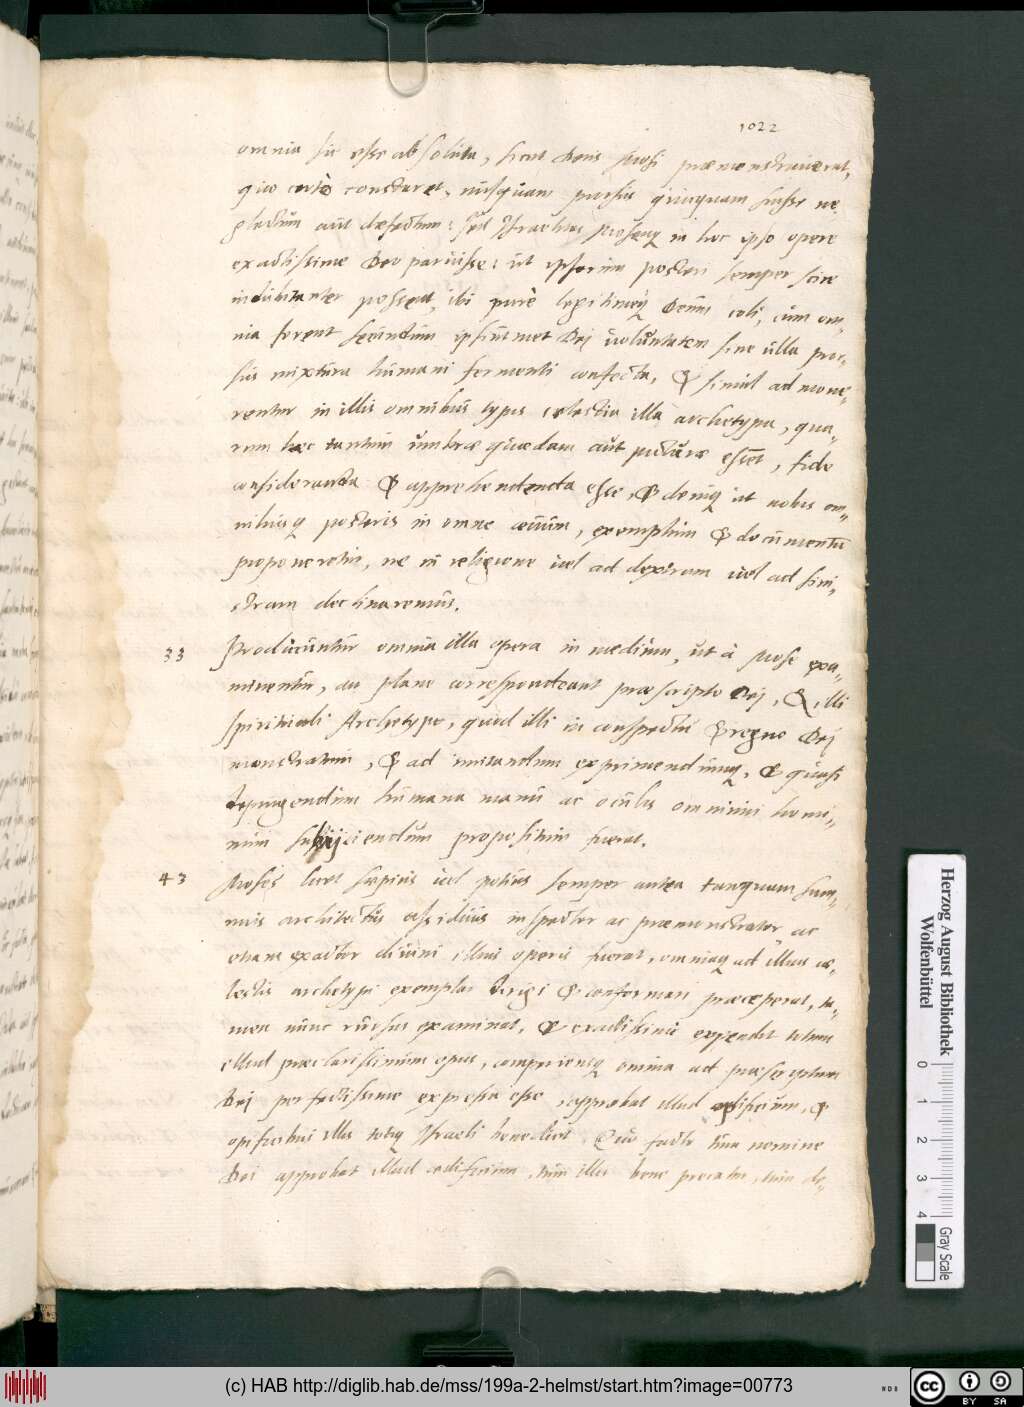 1022
omnia sic esse absoluta, sicut Deus Mosi præmonstraverat,
quo certè constaret, nusquam prorsus quicquam fuisse ne
glectum aut defectum: sed Israelitas Mosenq in hoc ipso opere
exactissime Deo paruisse: ut ipsorum posteri semper scire
indubitanter possent, ibi purè legitimeq Deum coli, cum om=
nia forent secundum ipsiusmet Dei voluntatem sine ulla pror=
sus mixtura humani fermenti confecta, & simul admone=
rentur in illis omnibus typis cælestia illa archetypa, qua=
rum hæc tantum umbræ quædam aut picturæ essent, fide
consideranda & apprehendenda esse, & deniq ut nobis om=
nibusq posteris in omne ævum, exemplum & documentū
proponeretur, ne in religione vel ad dextram vel ad sini=
stram declinaremus.
33 Producuntur omnia illa opera in medium, ut à Mose exa=
minentur, an plane correspondeant præscripto Dei, & illi
spirituali Archetypo, quod illi in conspectu & regno Dei
monstratum, & ad imitandum exprimendumq, & quasi
depingendum humana manu ac oculis omnium homi=
num subijciendum propositum fuerat.
43 Moses licet sæpius vel potius semper antea tanquam sum=
mus architectus assiduus inspector ac præmonstrator ac
etiam exactor divini illius operis fuerat, omniaq ad illius cæ=
lestis archetypi exemplar dirigi & conformari præceperat, ta=
men nunc rursus examinat, & exactissime expendit totum
illud præclarissimum opus, comperiensq omnia ad præscriptum
Dei perfectissime expressa esse, approbat illud opificium, &
opificibus illis totiq Israeli benedicit. Quo facto tum nomine
Dei approbat illud ædificium, tum illis bene precatur, tum de=
Herzog August Bibliothek
Wolfenbüttel
0 1 2 3 4
Gray Scale
(c) HAB http://diglib.hab.de/mss/199a-2-helmst/start.htm?image=00773
cc BY SA